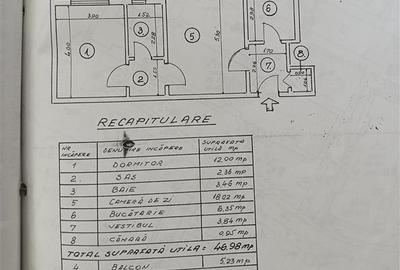 3.00
1.52
3
2.28
4.00
1
2
1.55
5
5.30
6
2.38
1.70
7
2.26
8
0.90
RECAPITULARE
NR. INCĂPERE
DENUMIRE INCĂPERE
SUPRAFAȚA UTILĂ mp
1 DORMITOR 12.00 mp
2. SAS 2.36 mp
3 BAIE 3.46 mp
5 CAMERĂ DE ZI 18.02 mp
6 BUCĂTARIE 6.35 mp
7 VESTIBUL 3.84 mp
8 CĂMARĂ 0.95 mp
TOTAL SUPRAFAȚĂ UTILĂ = 46.98 mp
4 BALCON 5.23 mp